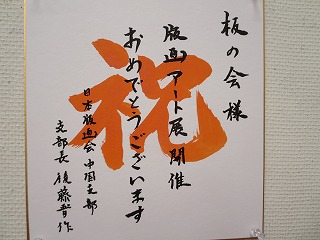 祝
板の会様
版画アート展開催
おめでとうございます
日本版画会 中国支部
支部長 後藤晋作